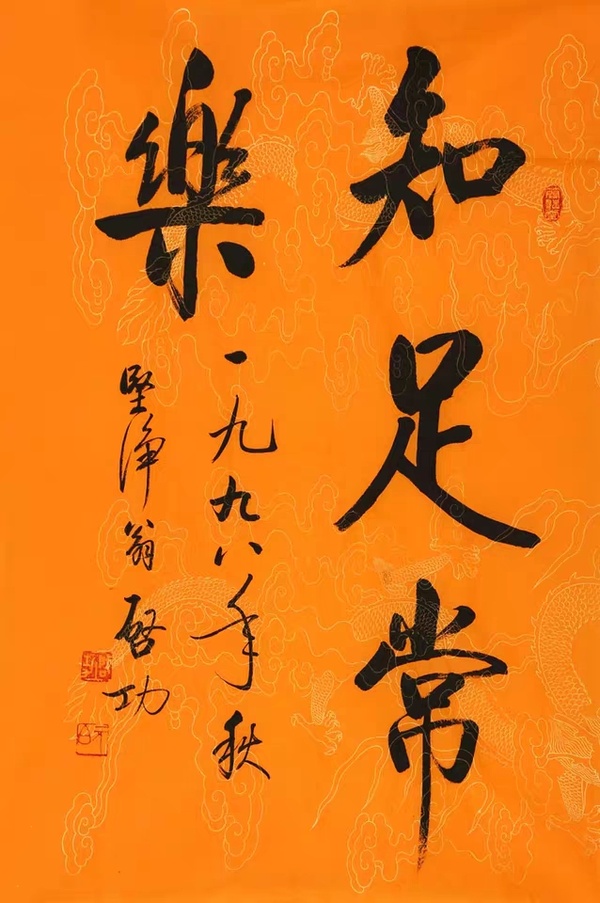 知足常
樂
一九九八年秋
堅淨翁啓功